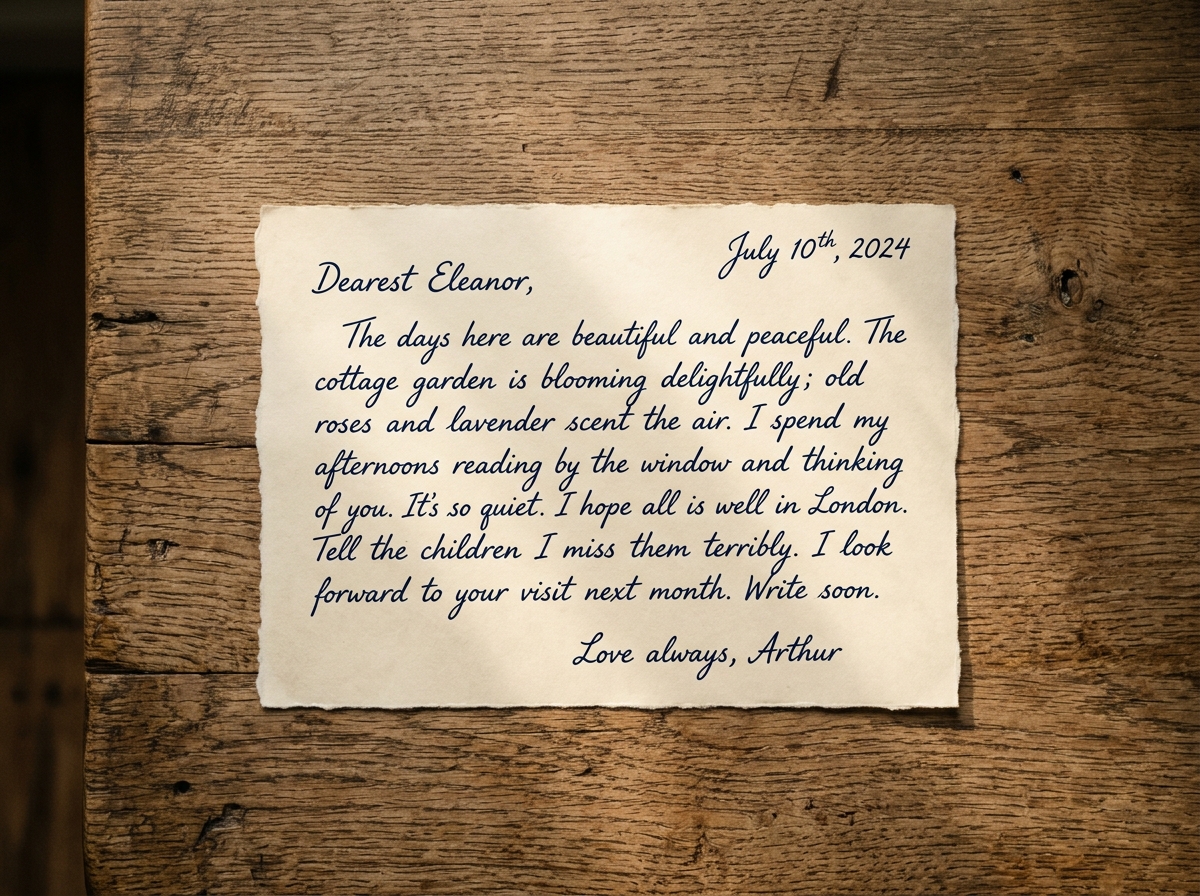 July 10th, 2024
Dearest Eleanor,
The days here are beautiful and peaceful. The
cottage garden is blooming delightfully; old
roses and lavender scent the air. I spend my
afternoons reading by the window and thinking
of you. It's so quiet. I hope all is well in London.
Tell the children I miss them terribly. I look
forward to your visit next month. Write soon.
Love always, Arthur